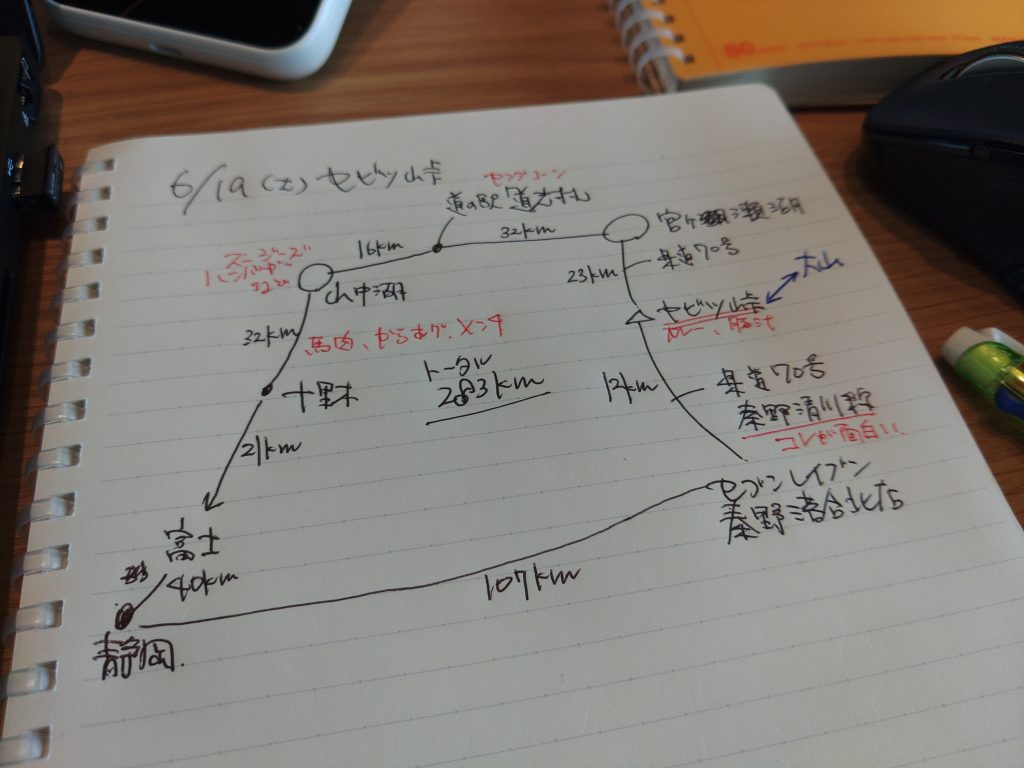 6/19(土) セビツ峠
センブコーン
道の駅 道志村
16km
32km
宮ヶ瀬湖
23km
県道70号
大山
スージーズ
ハンバーガー
山中湖
セビツ峠
カレー、豚汁
32km
馬肉、からあげ、メンチ
トータル
283km
十里木
12km
県道70号
秦野清川線
コレが面白い
21km
セブンレイブン
秦野落合北店
富士
40km
107km
静岡